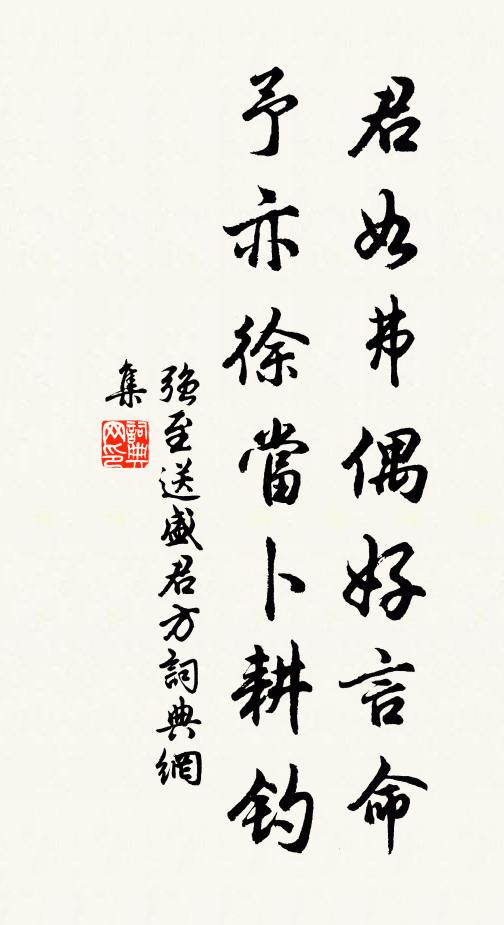 君如弗偶好言命
予亦徐當卜耕钓
強至送盛君方詞典網
集
詞典
网印